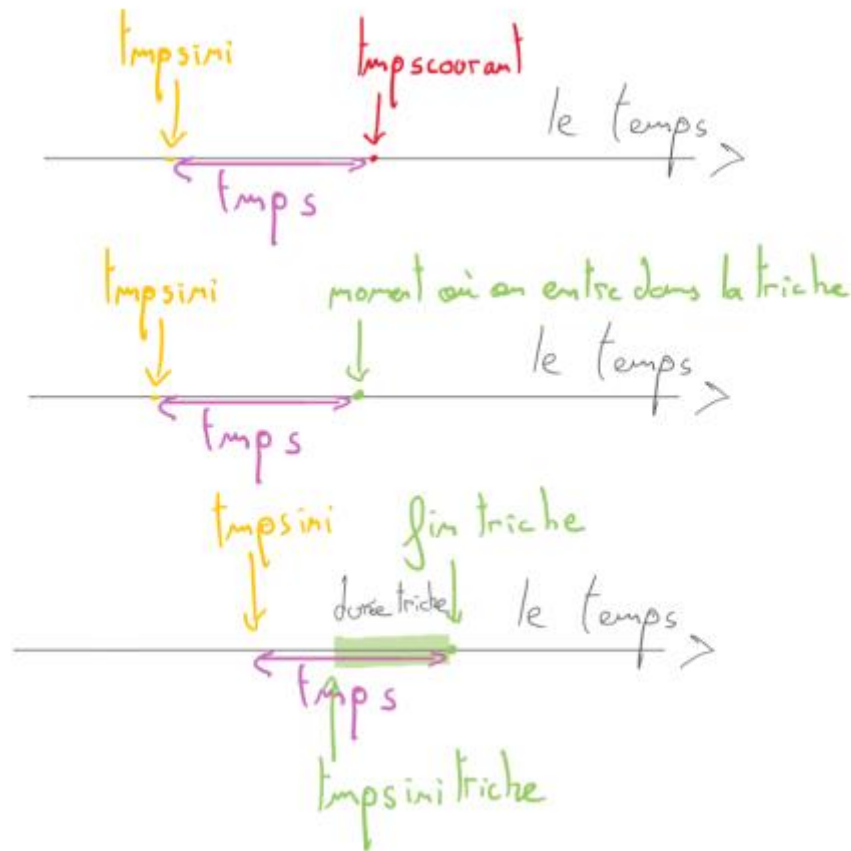 tmpsini
tmpscourant
le temps
tmps
tmpsini
moment où on entre dans la triche
le temps
tmps
tmpsini
fin triche
durée triche
le temps
tmps
tmpsinitriche